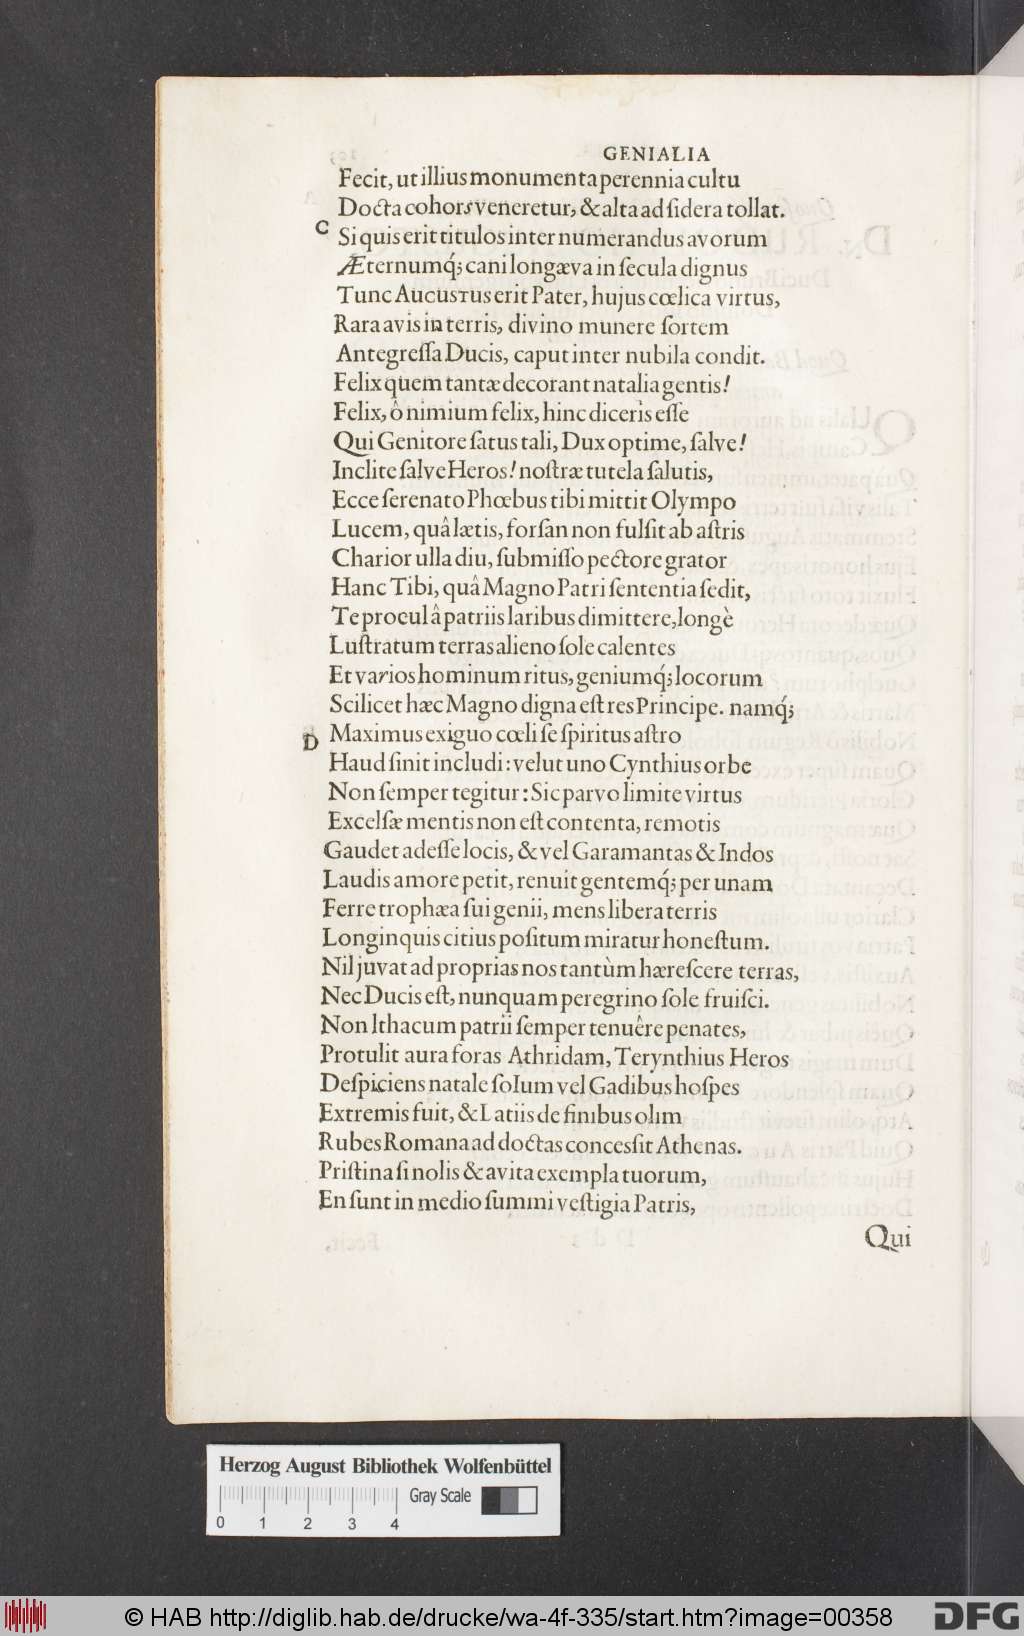 GENIALIA
Fecit, ut illius monumenta perennia cultu
Docta cohors veneretur, & alta ad ſidera tollat.
C Si quis erit titulos inter numerandus avorum
Æternumq́; cani longæva in ſecula dignus
Tunc AUGUSTUS erit Pater, hujus cœlica virtus,
Rara avis in terris, divino munere ſortem
Antegreſſa Ducis, caput inter nubila condit.
Felix quem tantæ decorant natalia gentis!
Felix, ô nimium felix, hinc diceris eſſe
Qui Genitore ſatus tali, Dux optime, ſalve!
Inclite ſalve Heros! noſtræ tutela ſalutis,
Ecce ſerenato Phœbus tibi mittit Olympo
Lucem, quâ lætis, forſan non fulſit ab aſtris
Charior ulla diu, ſubmiſſo pectore grator
Hanc Tibi, quâ Magno Patri ſententia ſedit,
Te procul â patriis laribus dimittere, longè
Luſtratum terras alieno ſole calentes
Et varios hominum ritus, geniumq́; locorum
Scilicet hæc Magno digna eſt res Principe. namq́;
D Maximus exiguo cœli ſe ſpiritus aſtro
Haud ſinit includi: velut uno Cynthius orbe
Non ſemper tegitur: Sic parvo limite virtus
Excelſæ mentis non eſt contenta, remotis
Gaudet adeſſe locis, & vel Garamantas & Indos
Laudis amore petit, renuit gentemq́; per unam
Ferre trophæa ſui genii, mens libera terris
Longinquis citius poſitum miratur honeſtum.
Nil juvat ad proprias nos tantùm hæreſcere terras,
Nec Ducis eſt, nunquam peregrino ſole fruiſci.
Non Ithacum patrii ſemper tenuêre penates,
Protulit aura foras Athridam, Terynthius Heros
Deſpiciens natale ſolum vel Gadibus hoſpes
Extremis fuit, & Latiis de finibus olim
Rubes Romana ad doctas conceſſit Athenas.
Priſtina ſi nolis & avita exempla tuorum,
En ſunt in medio ſummi veſtigia Patris,
Qui
Herzog August Bibliothek Wolfenbüttel
Gray Scale
0 1 2 3 4
© HAB http://diglib.hab.de/drucke/wa-4f-335/start.htm?image=00358
DFG